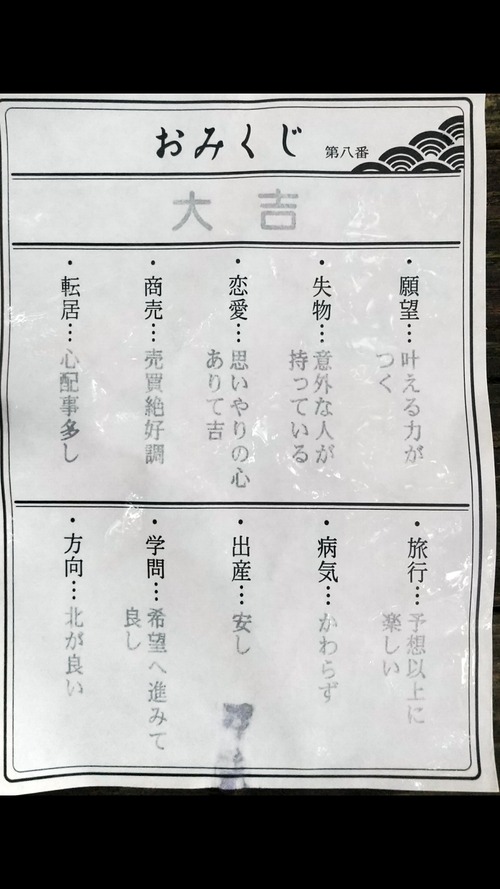 おみくじ
第八番
大吉
・願望…叶える力が
つく
・失物…意外な人が
持っている
・恋愛…思いやりの心
ありて吉
・商売…売買絶好調
・転居…心配事多し
・旅行…予想以上に
楽しい
・病気…かわらず
・出産…安し
・学問…希望へ進みて
良し
・方向…北が良い